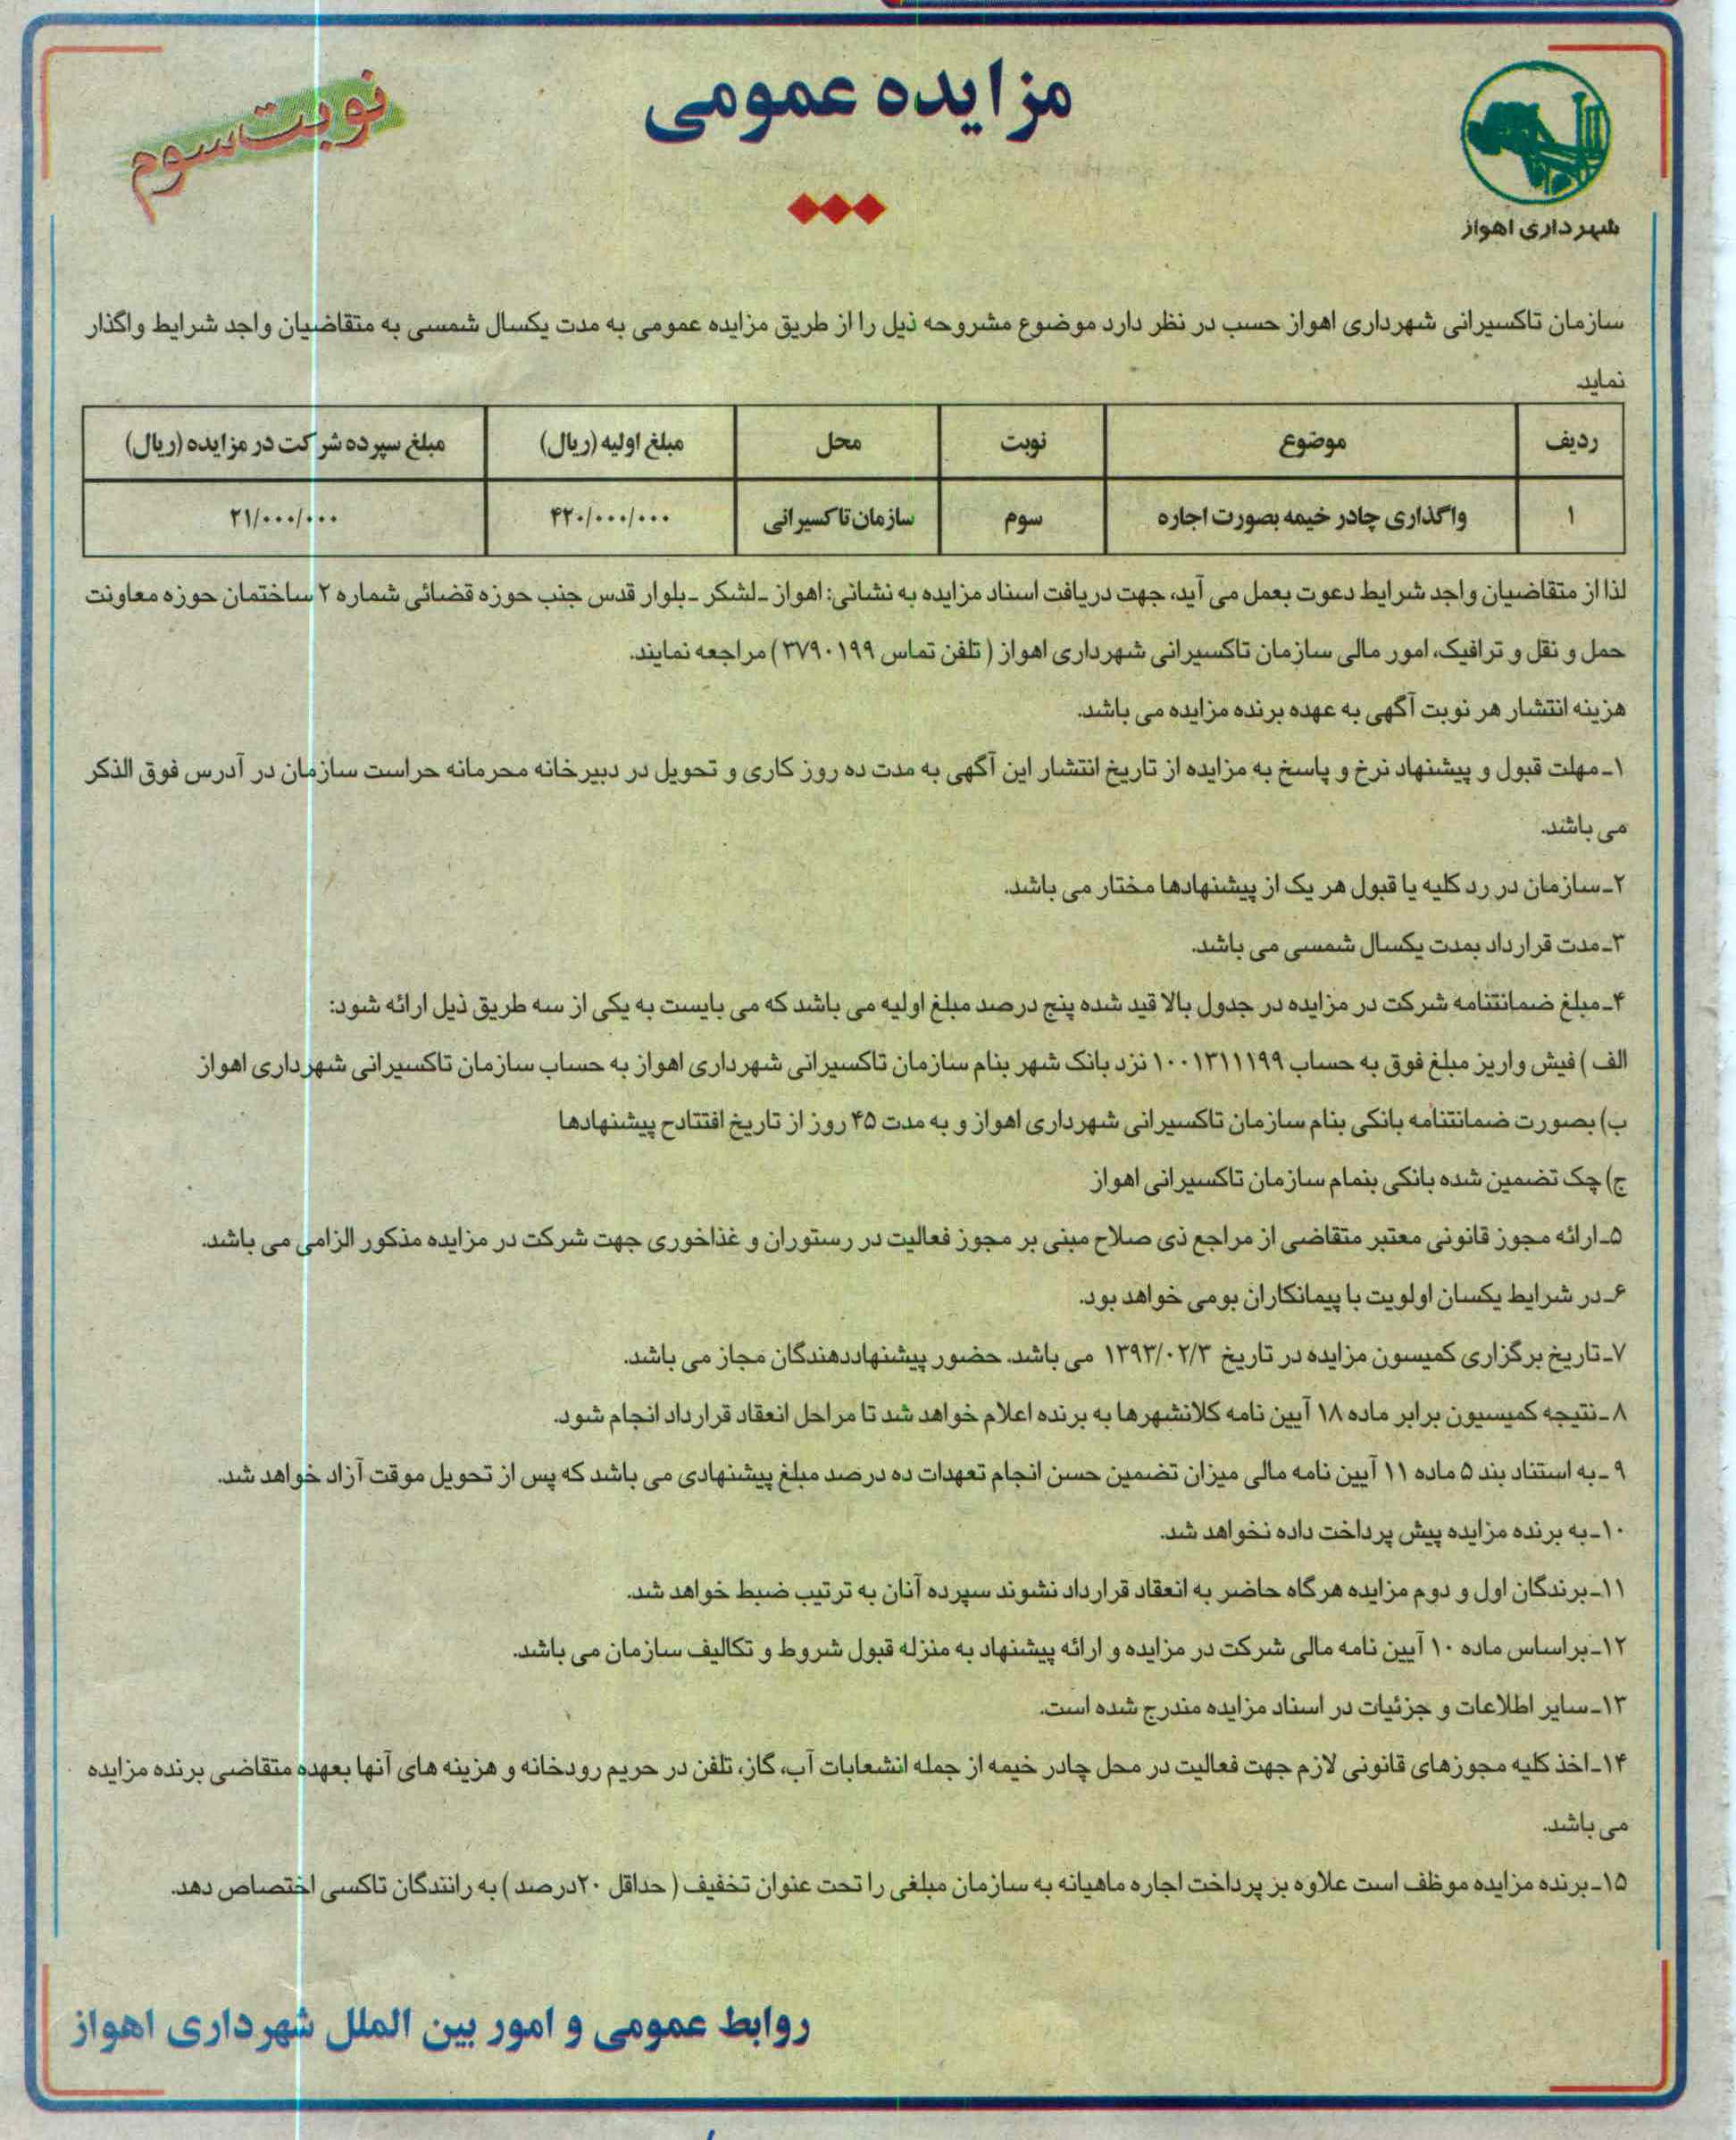 مزایده عمومی
نوبت سوم
شهرداری اهواز
سازمان تاکسیرانی شهرداری اهواز حسب در نظر دارد موضوع مشروحه ذیل را از طریق مزایده عمومی به مدت یکسال شمسی به متقاضیان واجد شرایط واگذار
نماید.
ردیف موضوع نوبت محل مبلغ اولیه (ریال) مبلغ سپرده شرکت در مزایده (ریال)
۱ واگذاری چادر خیمه بصورت اجاره سوم سازمان تاکسیرانی ۴۲۰/۰۰۰/۰۰۰ ۲۱/۰۰۰/۰۰۰
لذا از متقاضیان واجد شرایط دعوت بعمل می آید، جهت دریافت اسناد مزایده به نشانی: اهواز ـ لشکر ـ بلوار قدس جنب حوزه قضائی شماره ۲ ساختمان حوزه معاونت
حمل و نقل و ترافیک، امور مالی سازمان تاکسیرانی شهرداری اهواز ( تلفن تماس ۳۷۹۰۱۹۹ ) مراجعه نمایند.
هزینه انتشار هر نوبت آگهی به عهده برنده مزایده می باشد.
۱ـ مهلت قبول و پیشنهاد نرخ و پاسخ به مزایده از تاریخ انتشار این آگهی به مدت ده روز کاری و تحویل در دبیرخانه محرمانه حراست سازمان در آدرس فوق الذکر
می باشد.
۲ـ سازمان در رد کلیه یا قبول هر یک از پیشنهادها مختار می باشد.
۳ـ مدت قرارداد بمدت یکسال شمسی می باشد.
۴ـ مبلغ ضمانتنامه شرکت در مزایده در جدول بالا قید شده پنج درصد مبلغ اولیه می باشد که می بایست به یکی از سه طریق ذیل ارائه شود:
الف ) فیش واریز مبلغ فوق به حساب ۱۰۰۱۳۱۱۱۹۹ نزد بانک شهر بنام سازمان تاکسیرانی شهرداری اهواز به حساب سازمان تاکسیرانی شهرداری اهواز
ب) بصورت ضمانتنامه بانکی بنام سازمان تاکسیرانی شهرداری اهواز و به مدت ۴۵ روز از تاریخ افتتادح پیشنهادها
ج) چک تضمین شده بانکی بنمام سازمان تاکسیرانی اهواز
۵ـ ارائه مجوز قانونی معتبر متقاضی از مراجع ذی صلاح مبنی بر مجوز فعالیت در رستوران و غذاخوری جهت شرکت در مزایده مذکور الزامی می باشد.
۶ـ در شرایط یکسان اولویت با پیمانکاران بومی خواهد بود.
۷ـ تاریخ برگزاری کمیسون مزایده در تاریخ ۱۳۹۳/۰۲/۳ می باشد. حضور پیشنهاددهندگان مجاز می باشد.
۸ ـ نتیجه کمیسیون برابر ماده ۱۸ آیین نامه کلانشهرها به برنده اعلام خواهد شد تا مراحل انعقاد قرارداد انجام شود.
۹ ـ به استناد بند ۵ ماده ۱۱ آیین نامه مالی میزان تضمین حسن انجام تعهدات ده درصد مبلغ پیشنهادی می باشد که پس از تحویل موقت آزاد خواهد شد.
۱۰ـ به برنده مزایده پیش پرداخت داده نخواهد شد.
۱۱ـ برندگان اول و دوم مزایده هرگاه حاضر به انعقاد قرارداد نشوند سپرده آنان به ترتیب ضبط خواهد شد.
۱۲ـ براساس ماده ۱۰ آیین نامه مالی شرکت در مزایده و ارائه پیشنهاد به منزله قبول شروط و تکالیف سازمان می باشد.
۱۳ـ سایر اطلاعات و جزئیات در اسناد مزایده مندرج شده است.
۱۴ـ اخذ کلیه مجوزهای قانونی لازم جهت فعالیت در محل چادر خیمه از جمله انشعابات آب، گاز، تلفن در حریم رودخانه و هزینه های آنها بعهده متقاضی برنده مزایده
می باشد.
۱۵ـ برنده مزایده موظف است علاوه بز پرداخت اجاره ماهیانه به سازمان مبلغی را تحت عنوان تخفیف ( حداقل ۲۰درصد ) به رانندگان تاکسی اختصاص دهد.
روابط عمومی و امور بین الملل شهرداری اهواز